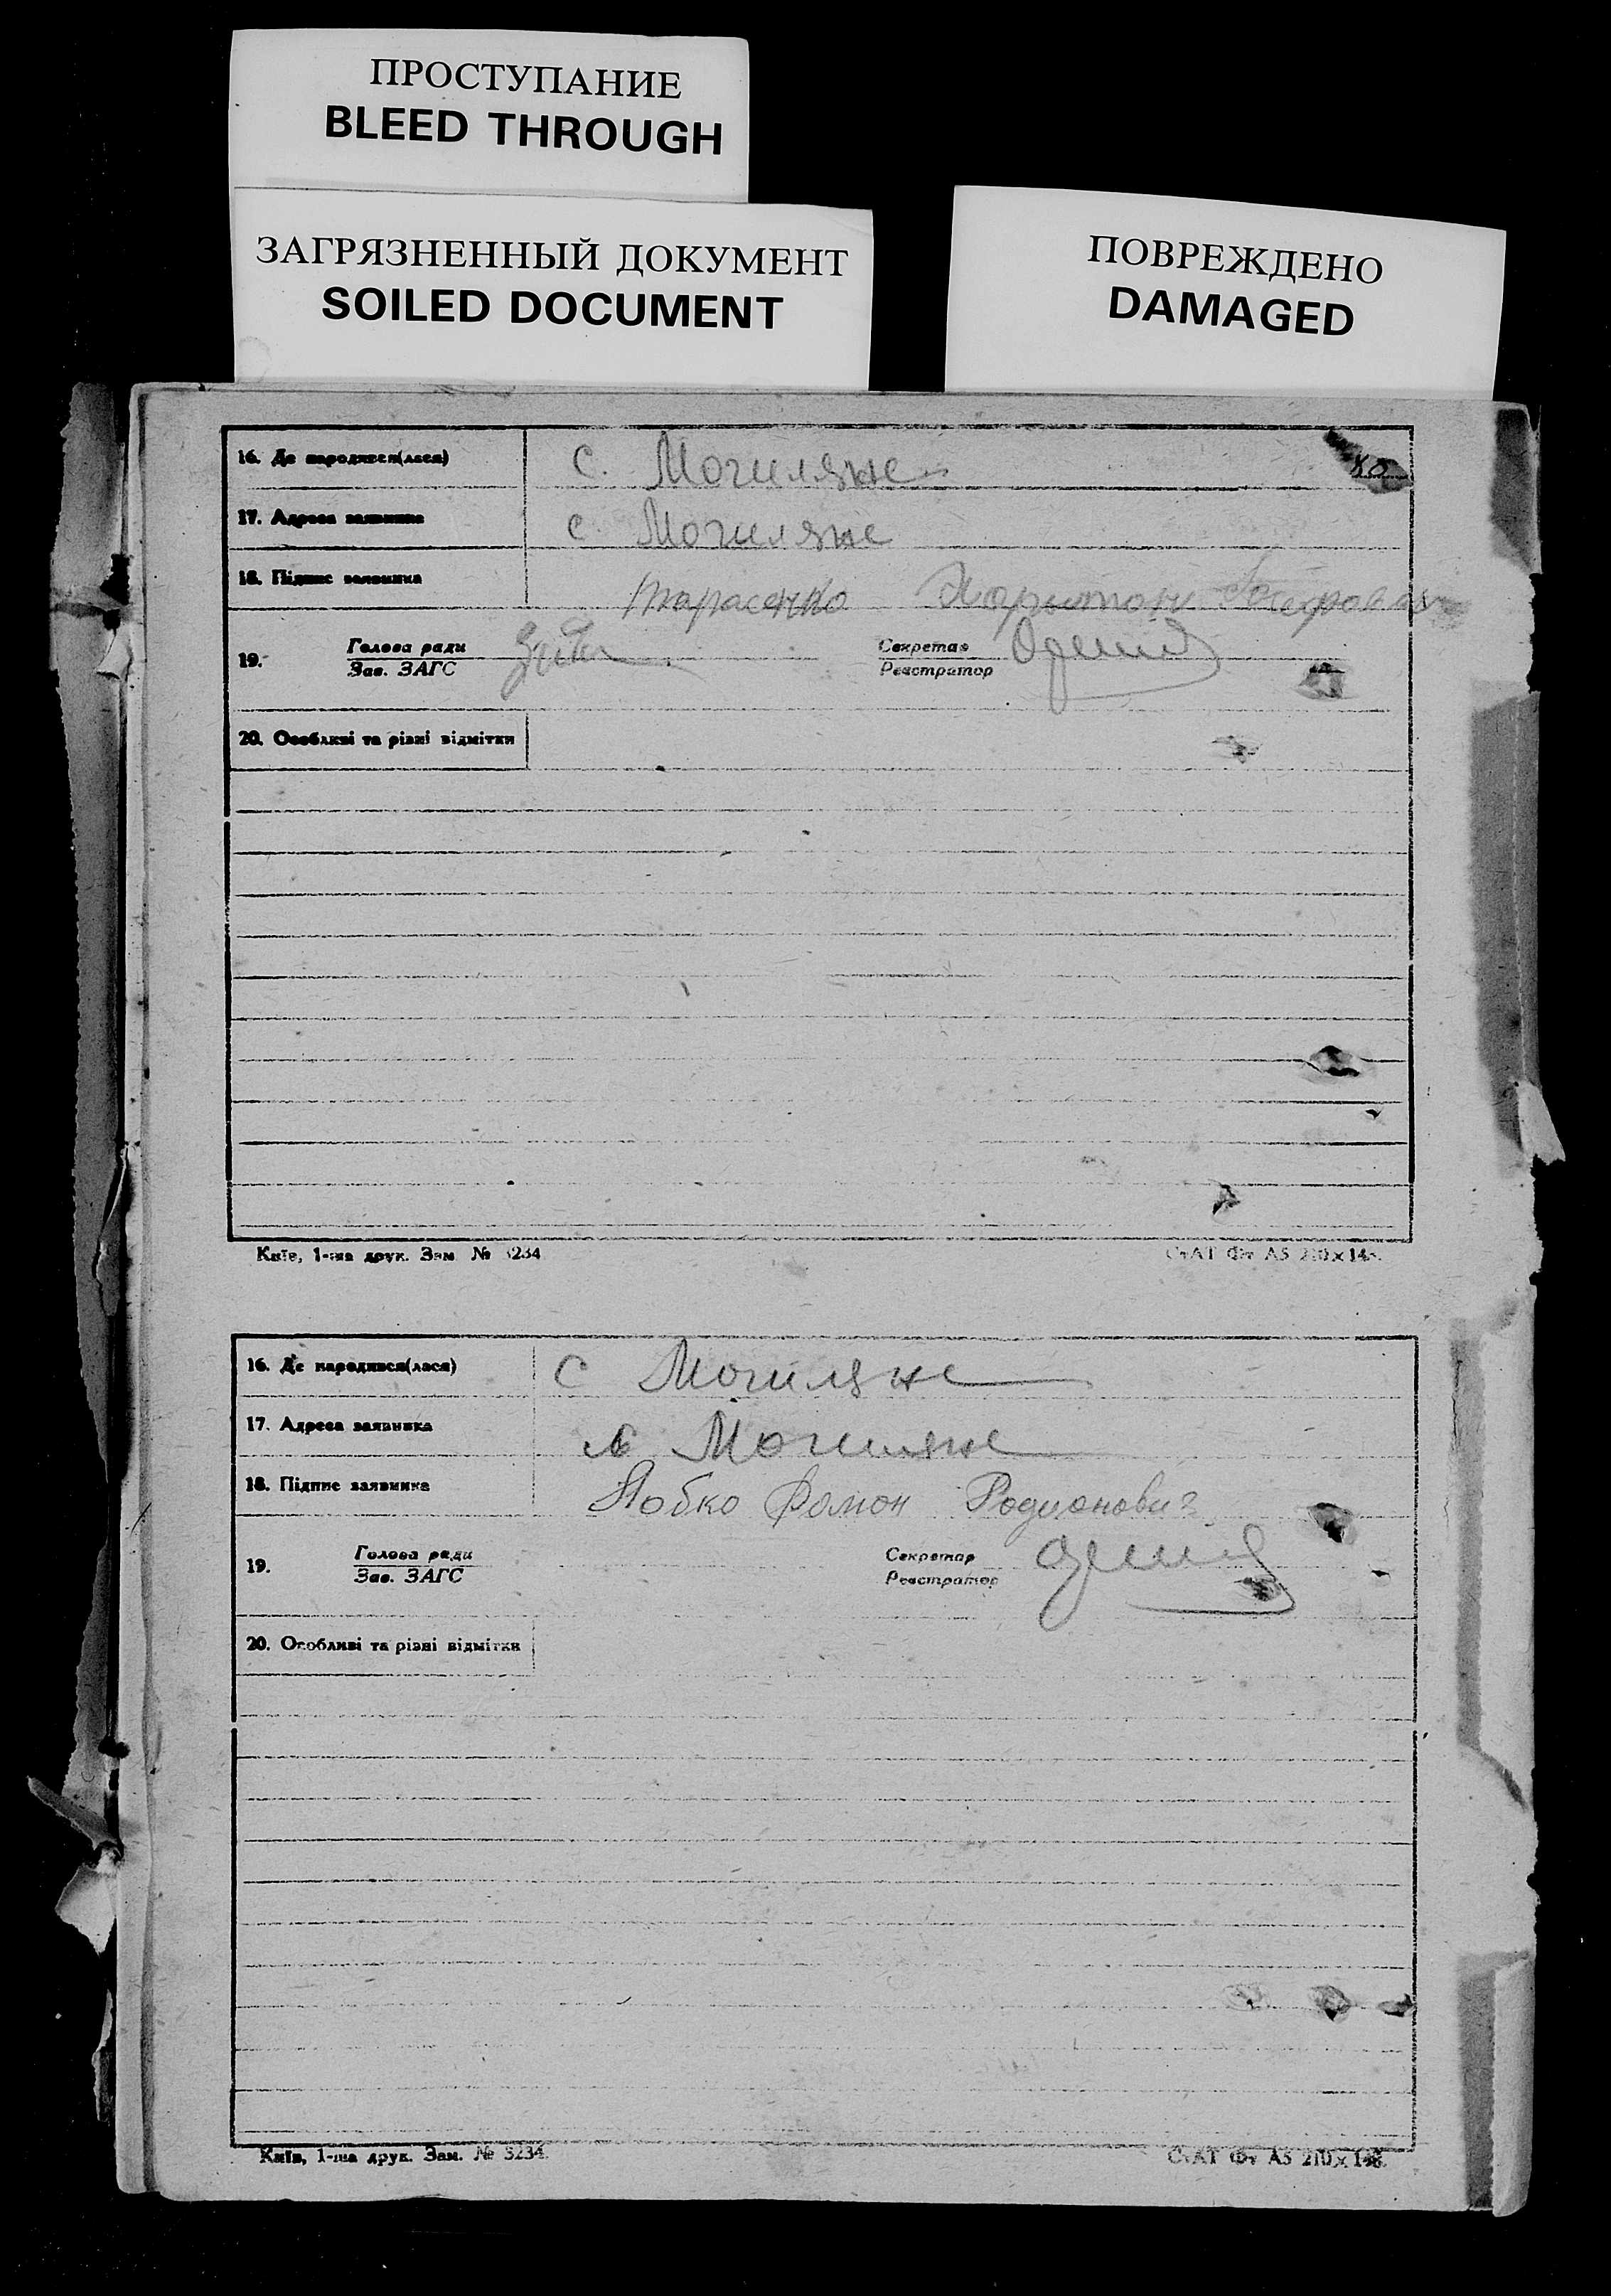 ПРОСТУПАНИЕ
BLEED THROUGH
ЗАГРЯЗНЕННЫЙ ДОКУМЕНТ
SOILED DOCUMENT
ПОВРЕЖДЕНО
DAMAGED
80
16. Де народився(лася) с. Могиляне
17. Адреса заявника с. Могиляне
18. Підпис заявника Тарасенко Харитон
19. Голова ради Секретар
Зав. ЗАГС Реєстратор
20. Особливі та різні відмітки
Київ, 1-ша друк. Зам. № 3234 СтАТ Фт А5 210×148.
16. Де народився(лася) с Могиляне
17. Адреса заявника с Могиляне
18. Підпис заявника Бобко Роман Родионович
19. Голова ради Секретар
Зав. ЗАГС Реєстратор
20. Особливі та різні відмітки
Київ, 1-ша друк. Зам. № 3234. СтАТ Фт А5 210×148.